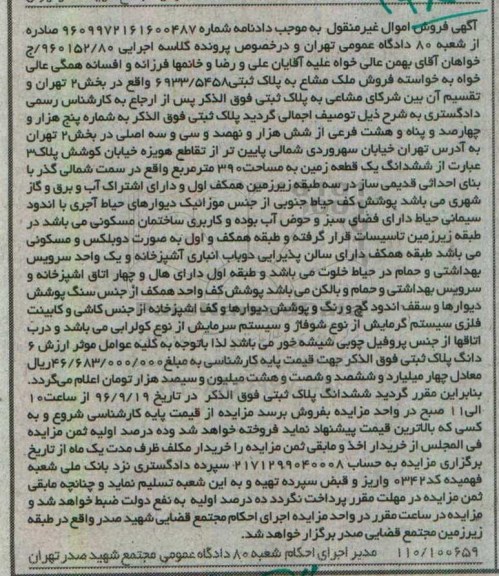 آگهی فروش اموال غیرمنقول به موجب دادنامه شماره ۹۶۰۹۹۷۲۱۶۱۶۰۰۴۸۷ صادره
از شعبه ۸۰ دادگاه عمومی تهران و درخصوص پرونده کلاسه اجرایی ۹۶۰۱۵۲/۸۰/ج
خواهان آقای بهمن عالی خواه علیه آقایان علی و رضا و خانمها فرزانه و افسانه همگی عالی
خواه به خواسته فروش ملک مشاع به پلاک ثبتی ۶۹۳۳/۵۴۵۸ واقع در بخش۲ تهران و
تقسیم آن بین شرکای مشاعی به پلاک ثبتی فوق الذکر پس از ارجاع به کارشناس رسمی
دادگستری به شرح ذیل توصیف اجمالی گردید پلاک ثبتی فوق الذکر به شماره پنج هزار و
چهارصد و پناه و هشت فرعی از شش هزار و نهصد و سی و سه اصلی در بخش۲ تهران
به آدرس تهران خیابان سهروردی شمالی پایین تر از تقاطع هویزه خیابان کوشش پلاک۳
عبارت از ششدانگ یک قطعه زمین به مساحت۳۹۰ مترمربع واقع در سمت شمالی گذر با
بنای احداثی قدیمی ساز در سه طبقه زیرزمین همکف اول و دارای اشتراک آب و برق و گاز
شهری می باشد پوشش کف حیاط جنوبی از جنس موزائیک دیوارهای حیاط آجری با اندود
سیمانی حیاط دارای فضای سبز و حوض آب بوده و کاربری ساختمان مسکونی می باشد در
طبقه زیرزمین تاسیسات قرار گرفته و طبقه همکف و اول به صورت دوبلکس و مسکونی
می باشد طبقه همکف دارای سالن پذیرایی دوباب انباری آشپزخانه و یک واحد سرویس
بهداشتی و حمام در حیاط خلوت می باشد و طبقه اول دارای هال و چهار اتاق اشپزخانه و
سرویس بهداشتی و حمام و بالکن می باشد پوشش کف واحد همکف از جنس سنگ پوشش
دیوارها و سقف اندود گچ و رنگ و پوشش دیوارها و کف اشپزخانه از جنس کاشی و کابینت
فلزی سیستم گرمایش از نوع شوفاژ و سیستم سرمایش از نوع کولرابی می باشد و درب
اتاقها از جنس پروفیل چوبی شیشه خور می باشد لذا باتوجه به کلیه عوامل موثر ارزش ۶
دانگ پلاک ثبتی فوق الذکر جهت قیمت پایه کارشناسی به مبلغ۴۶/۶۸۳/۰۰۰/۰۰۰ریال
معادل چهار میلیارد و ششصد و شصت و هشت میلیون و سیصد هزار تومان اعلام می‌گردد.
بنابراین مقرر گردید ششدانگ پلاک ثبتی فوق الذکر در تاریخ ۹۶/۹/۱۹ از ساعت۱۰
الی۱۱ صبح در واحد مزایده بفروش برسد مزایده از قیمت پایه کارشناسی شروع و به
کسی که بالاترین قیمت پیشنهاد نماید فروخته خواهد شد وده درصد اولیه ثمن مزایده
فی المجلس از خریدار اخذ و مابقی ثمن مزایده را خریدار مکلف ظرف مدت یک ماه از تاریخ
برگزاری مزایده به حساب ۲۱۷۱۲۹۹۰۴۰۰۰۸ سپرده دادگستری نزد بانک ملی شعبه
فهمیده کد۰۳۴۲ واریز و قبض سپرده تهیه و به این شعبه تسلیم نماید و چنانچه مابقی
ثمن مزایده در مهلت مقرر پرداخت نگردد ده درصد اولیه به نفع دولت ضبط خواهد شد و
مزایده در ساعت مقرر در واحد مزایده اجرای احکام مجتمع قضایی شهید صدر واقع در طبقه
زیرزمین مجتمع قضایی صدر برگزار خواهد شد.
۱۱۰/۱۰۰۶۵۹ مدیر اجرای احکام شعبه۸۰ دادگاه عمومی مجتمع شهید صدر تهران